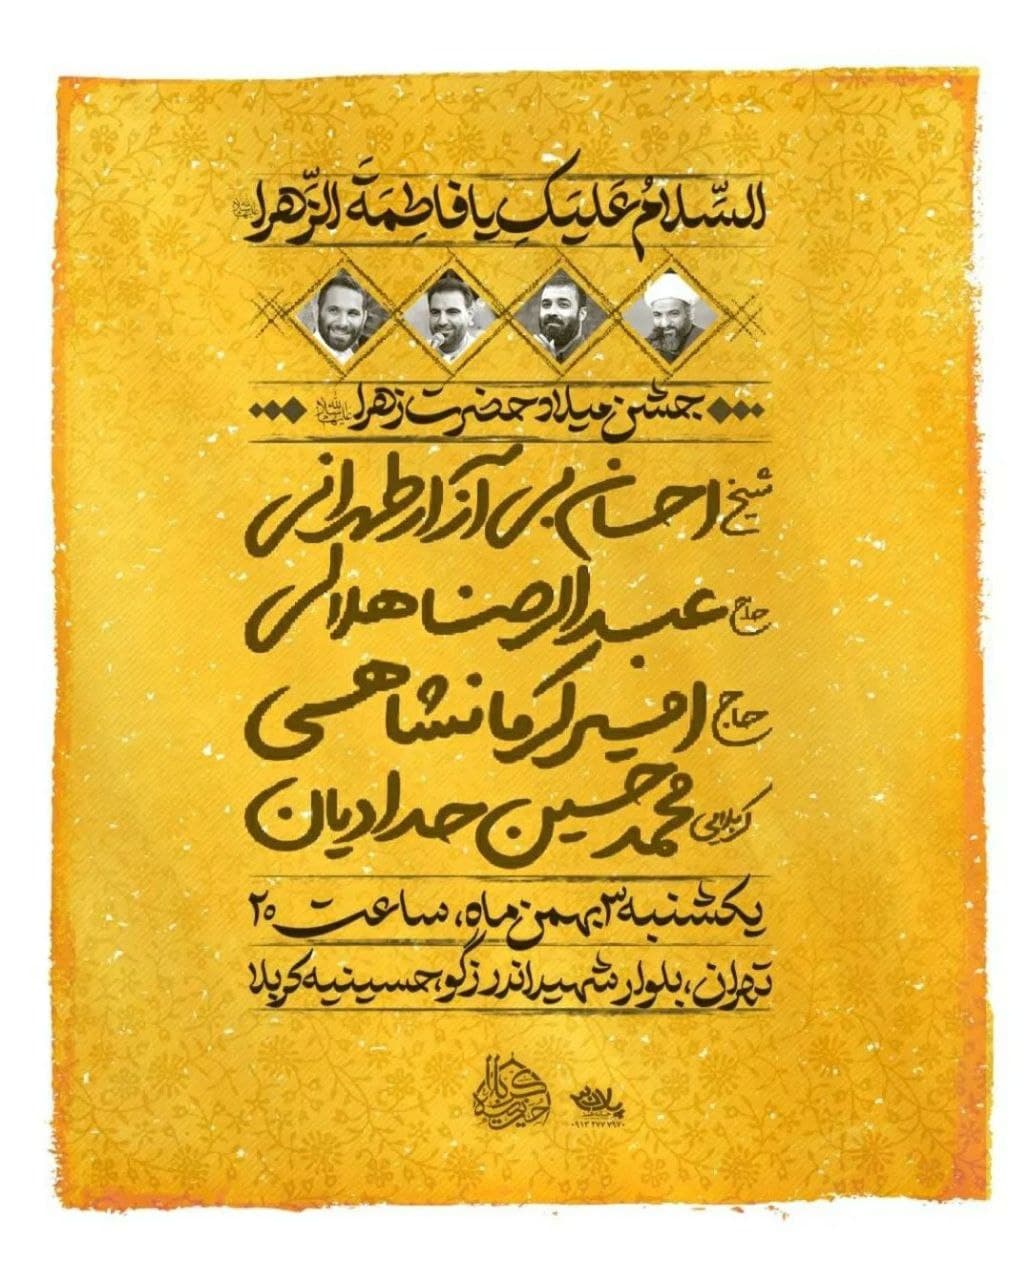 السَّلامُ عَلَیکِ یا فاطِمَةَ الزَّهرا
جشن میلاد حضرت زهرا
شیخ احسان بی آزار طهرانی
حاج عبدالرضا هلالی
حاج امیر کرمانشاهی
کربلایی محمد حسین حدادیان
یکشنبه ۳ بهمن ماه، ساعت ۲۰
تهران، بلوار شهید اندرزگو، حسینیه کربلا
حسینیه کربلا